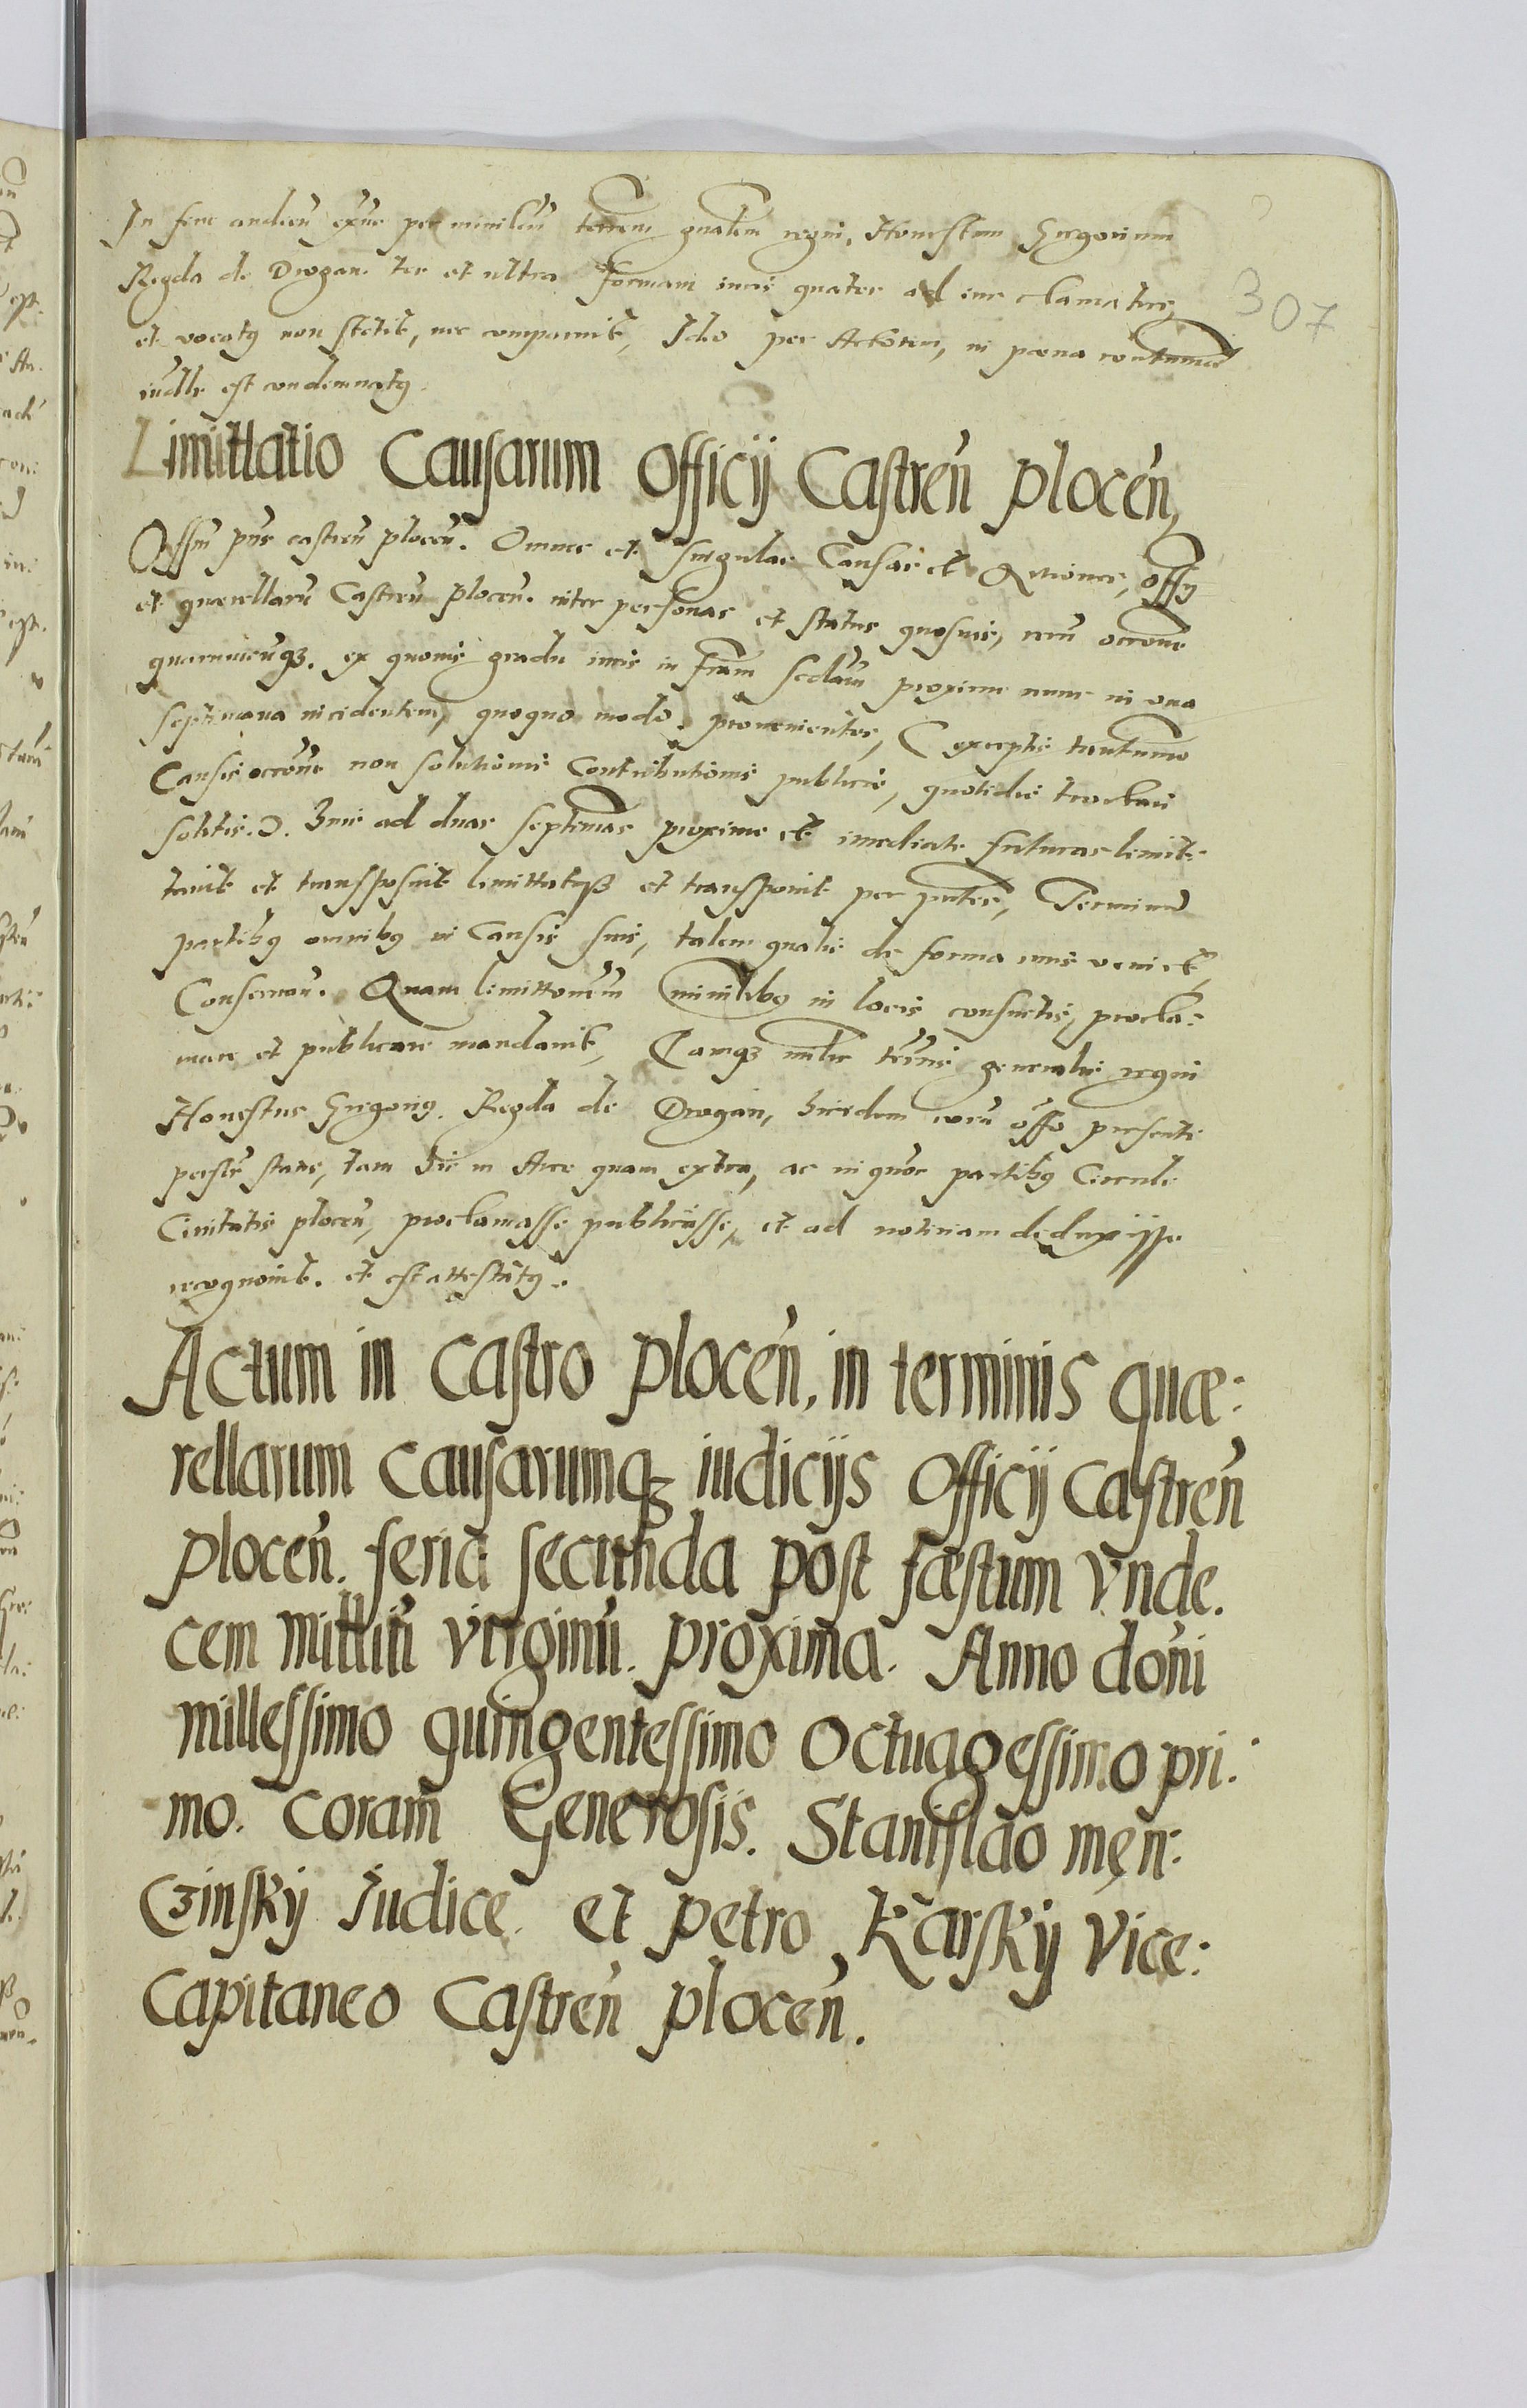 307
In fine audien exne per minilem terrem gnalem regni, Honestum Gregorium
Regda de Drogan. ter et ultra formam iuris quater ad iure clamatus,
et vocatg non stetit, nec comparuit, Ideo per Actorem, in pœna contumac
iudlr est condemnatg.
Limittatio Causarum Officij Castreñ Ploceñ,
Offm pns castreñ ploceñ. Omnes et singulas Causas et Actiones, offij
et quærellarũ Castreñ ploceñ. inter personas et status quosvis, rerũ occone
quarumcũq₃. ex quovis gradu iuris in fram secdam proxime nunc in una
septimana incidentem, quoquo modo. provenientes, ( exceptis tantumo
Causis occone non solutionis Contributionis publicæ, quotidie tractari
solitis.). Hinc ad duas septimas proxime et imediate futuras limit:
tavit et transposuit limittatq₃ et transponit per pntes, Terminũ
partibg omnibg in Causis suis, talem qualis de forma iuris veniet,
Conservan. Quam limittonem minilibg in locis consuetis, procla:
mare et publicare mandavit, Eamq₃ mlr terris generalis regni
Honestus Gregorig. Regda de Drogan, hicidem corã offo presenti
persl̃r stans, tam hic in Arce quam extra, ac in quor partibg Circuli
Civitatis ploceñ, proclamasse publicasse, et ad notitiam deduxisse
recognovit. et est attestatg.
Actum in Castro Ploceñ, in terminis quæ:
rellarum Causarumq₃ iudicijs Officij Castreñ
Ploceñ. feria secunda post fæstum vnde.
cem milliũ virginũ. proxima. Anno dom̃i
millessimo quingentessimo Octuagessimo pri:
mo. Coram Generosis. Stanislao męn:
Czinskij Iudice. et Petro Karskij Vice:
Capitaneo Castreñ Ploceñ.